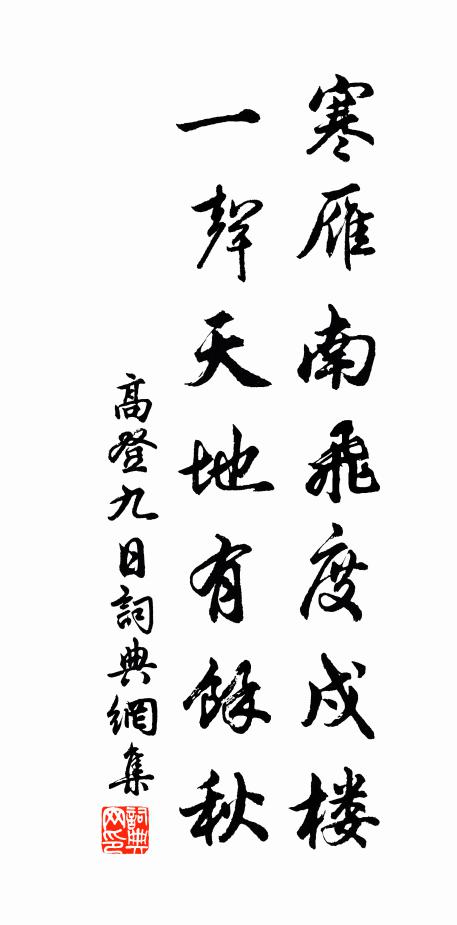 寒雁南飛度戍楼
一聲天地有餘秋
高登九日詞典網集
詞典網印